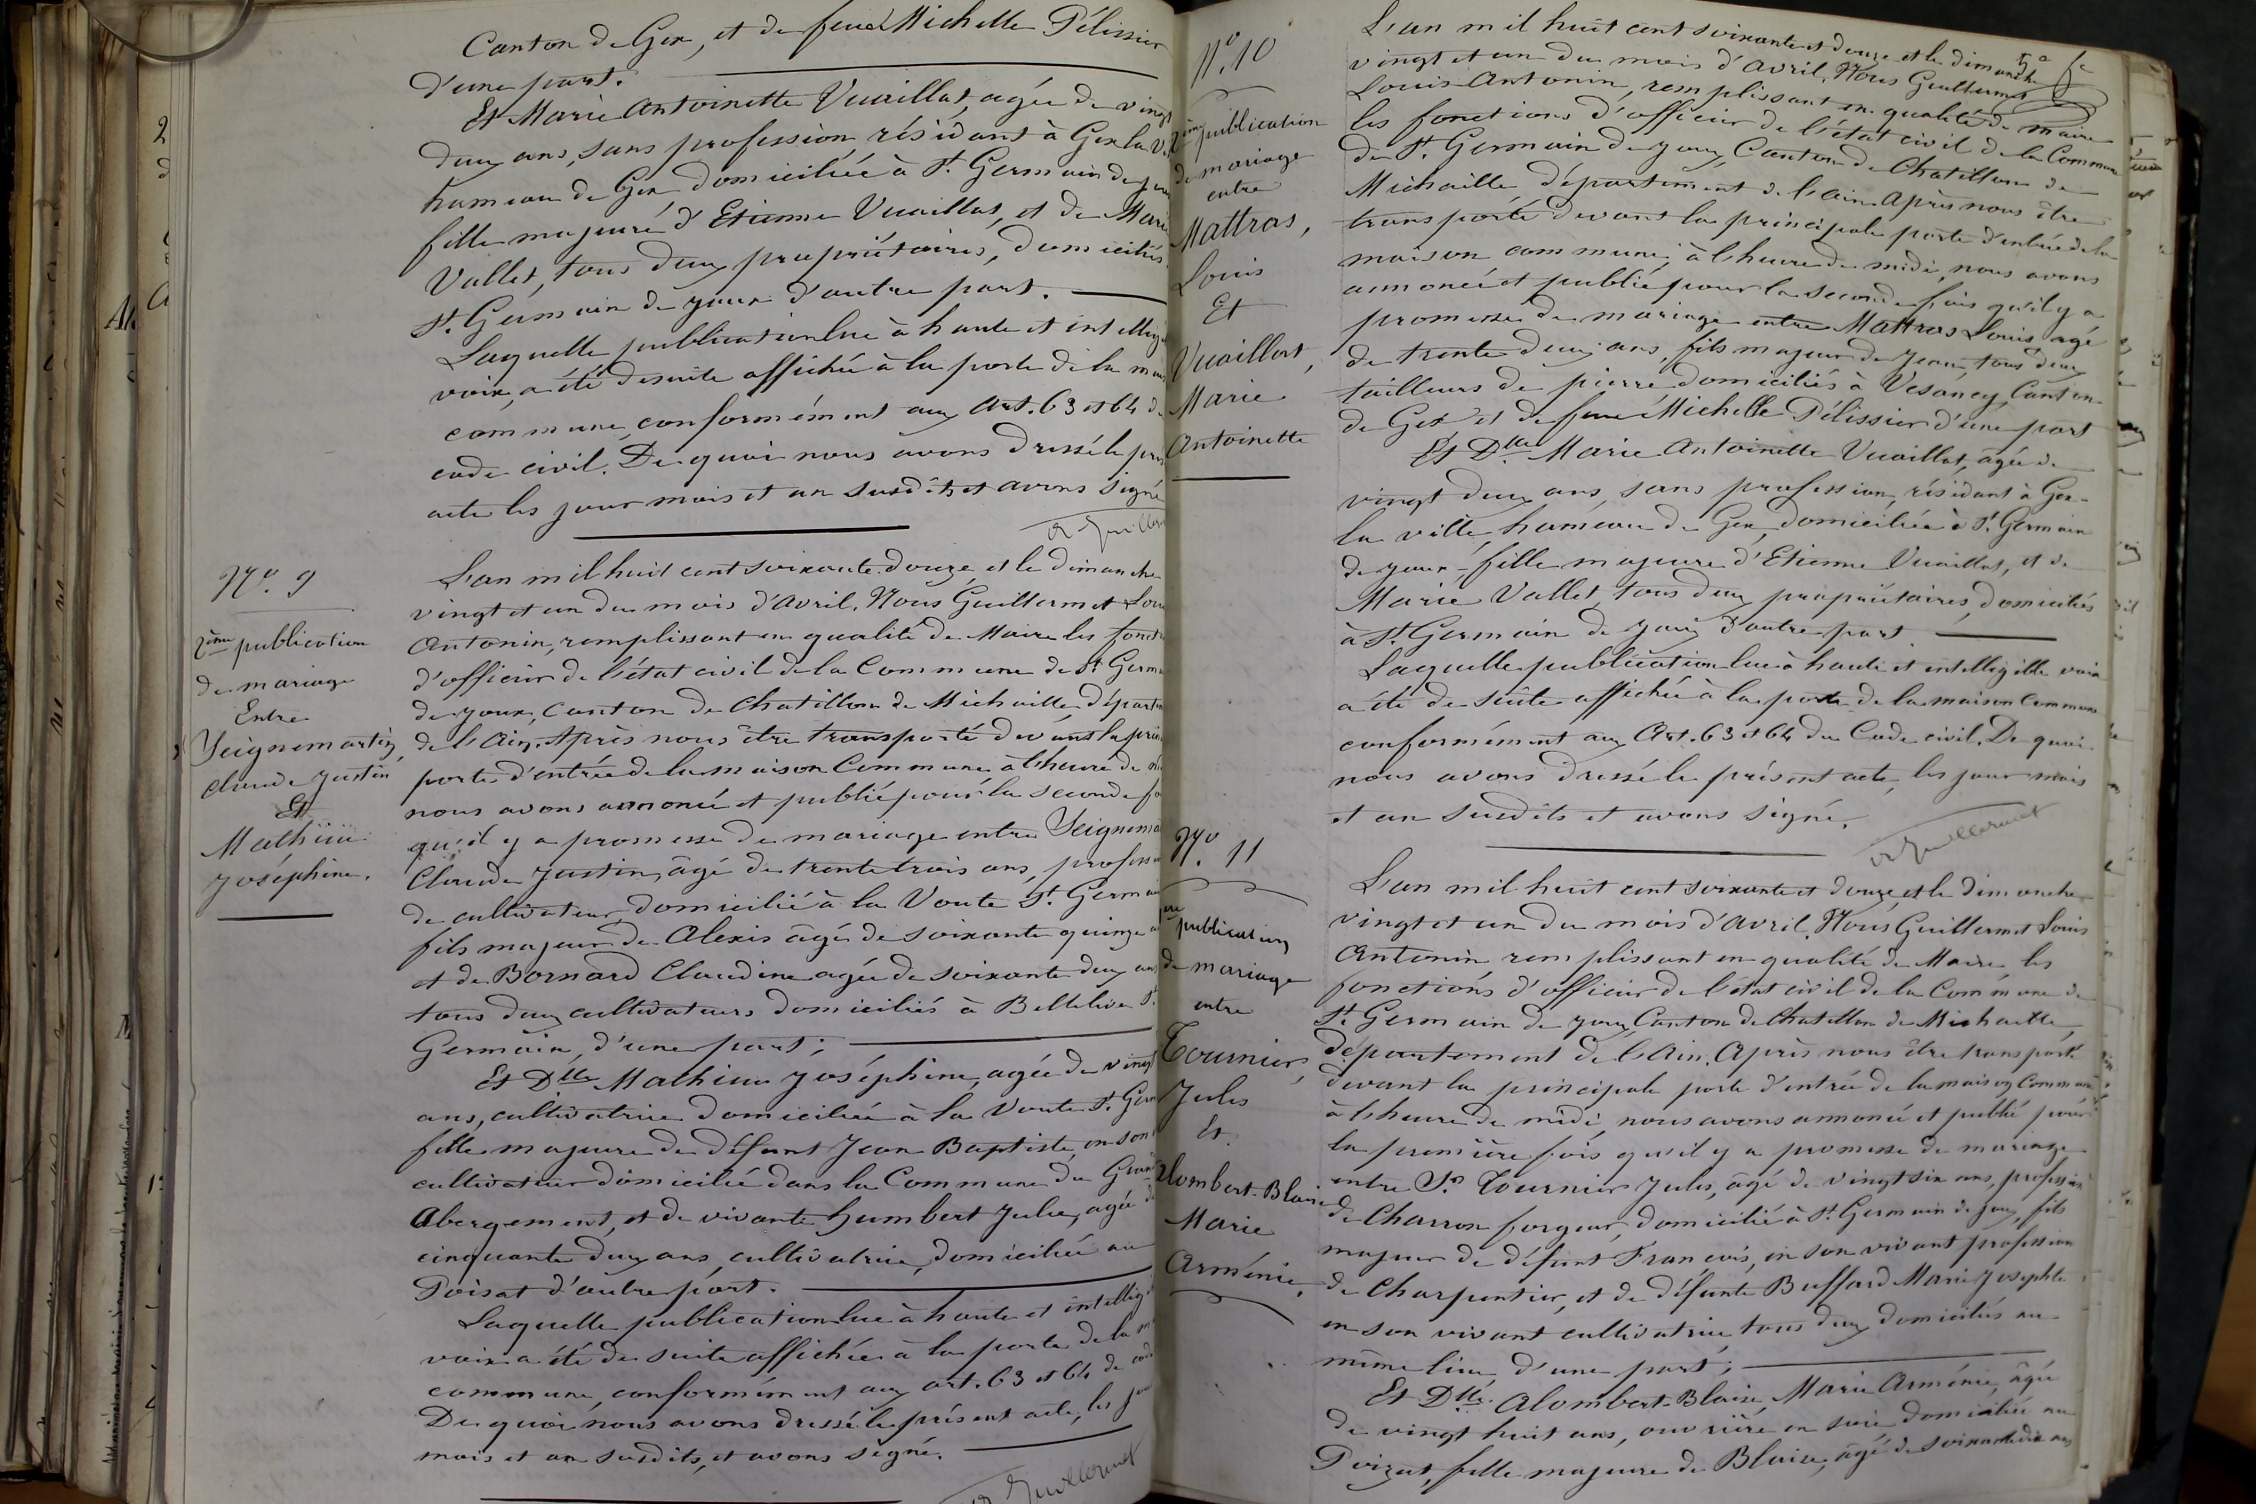 Canton de Gex, et de feue Michelle Pélissier
d'une part.
Et Marie Antoinette Vuaillat, agée de vingt
deux ans, sans profession, résidant à Gex la v
hameau de Gex domiciliée à St. Germain de joux
fille majeure d'Etienne Vuaillat, et de Marie
Vallet, tous deux propriétaires, domiciliés
St. Germain de joux d'autre part.
Laquelle publication lue à haute et intellig
voix, a été desuite affichée à la porte de la mais
commune, conformément aux Art. 63 et 64 d
code civil. De quoi nous avons dressé le prés
acte les jour mois et an susdits et avons signé
No. 9
2ème publication
de mariage
Entre
Seignemartin
Claude Justin
Et
Mathieu
Joséphine.
L'an mil huit cent soixante-douze et le dimanche
vingt et un du mois d'Avril, Nous Guillermet Louis
Antonin, remplissant en qualité de Maire les foncti
d'officier de l'état civil de la Commune de St Germ
de joux, Canton de Chatillon de Michaille, départem
de l'Ain. Après nous être transporté devant la prin
porte d'entrée de la maison Commune à l'heure de mi
nous avons annoncé et publié pour la seconde fo
qu'il y a promesse de mariage entre Seignema
Claude Justin, âgé de trente trois ans, profess
de cultivateur domicilié à la Voute St. Germain
fils majeur de Alexis âgé de soixante quinze a
et de Bornard Claudine agée de soixante deux ans
tous deux cultivateurs domiciliés à Bellelive St.
Germain, d'une part;
Et Dlle Mathieu Joséphine, agée de vingt
ans, cultivatrice domiciliée à la Voute St. Germ
fille majeure de défunt Jean Baptiste, en son
cultivateur domicilié dans la Commune du Grand
Abergement, et de vivante Humbert Julie, agée de
cinquante deux ans, cultivatrice, domiciliée au
Poisat d'autre part.
Laquelle publication lue à haute et intellig
voix a été de suite affichée à la porte de la m
commune, conformément aux art. 63 et 64 de code
De quoi nous avons dressé le présent acte, les jour
mois et an susdits, et avons signé.
Guillermet
5e
No. 10
2ème publication
de mariage
entre
Mattras,
Louis
Et
Vuaillat,
Marie
Antoinette
L'an mil huit cent soixante et douze et le dimanche
vingt et un du mois d'Avril, Nous Guillermet
Louis Antonin, remplissant en qualité de maire
les fonctions d'officier de l'état civil de la Commune
de St. Germain de joux, Canton de Chatillon de
Michaille, département de l'Ain. Après nous être
transporté devant la principale porte d'entrée de la
maison commune, à l'heure de midi, nous avons
annoncé et publié pour la seconde fois qu'il y a
promesse de mariage entre Mattras Louis agé
de trente deux ans, fils majeur de Jean, tous deux
tailleurs de pierre domiciliés à Vesancy, Canton
de Gex et de feue Michelle Pélissier d'une part
Et Dlle Marie Antoinette Vuaillat, âgée de
vingt deux ans, sans profession, résidant à Gex-
la ville, hameau de Gex, domiciliée à St. Germain
de joux - fille majeure d'Etienne Vuaillat, et de
Marie Vallet, tous deux propriétaires, domiciliés
à St. Germain de joux d'autre part.
Laquelle publication lue à haute et intelligible voix
a été de suite affichée à la porte de la maison Commune
conformément aux Art. 63 et 64 du Code civil. De quoi
nous avons dressé le présent acte, les jour mois
et an susdits et avons signé.
Guillermet
No. 11
1ère publication
de mariage
entre
Tournier,
Jules
Et
Alombert-Blaise
Marie
Arménie.
L'an mil huit cent soixante et douze, et le dimanche
vingt et un du mois d'Avril, Nous Guillermet Louis
Antonin remplissant en qualité de Maire les
fonctions d'officier de l'état civil de la Commune de
St. Germain de joux, Canton de Chatillon de Michaille,
département de l'Ain. Après nous être transporté
devant la principale porte d'entrée de la maison commune
à l'heure de midi, nous avons annoncé et publié pour
la première fois qu'il y a promesse de mariage
entre Sr. Tournier Jules, âgé de vingt six ans, profession
de Charron forgeur, domicilié à St. Germain de joux, fils
majeur de défunt François, en son vivant profession
de Charpentier, et de défunte Buffard Marie Josephte
en son vivant cultivatrice tous deux domiciliés au
même lieu, d'une part;
Et Dlle. Alombert-Blaise, Marie Arménie, âgée
de vingt huit ans, ouvrière en soie domiciliée au
Poizat, fille majeure de Blaise, âgé de soixante dix ans